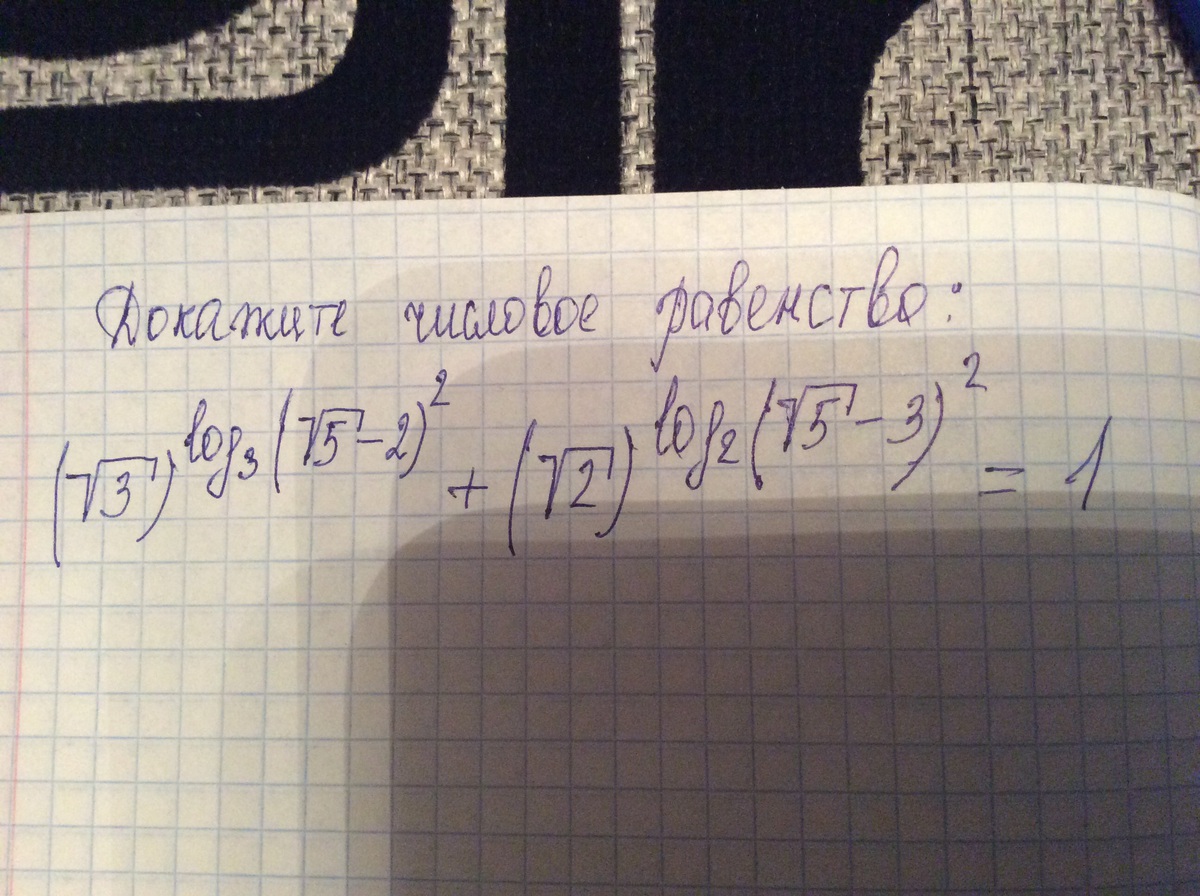 Докажите числовое равенство:
(√3)^log₃(√5-2)² + (√2)^log₂(√5-3)² = 1